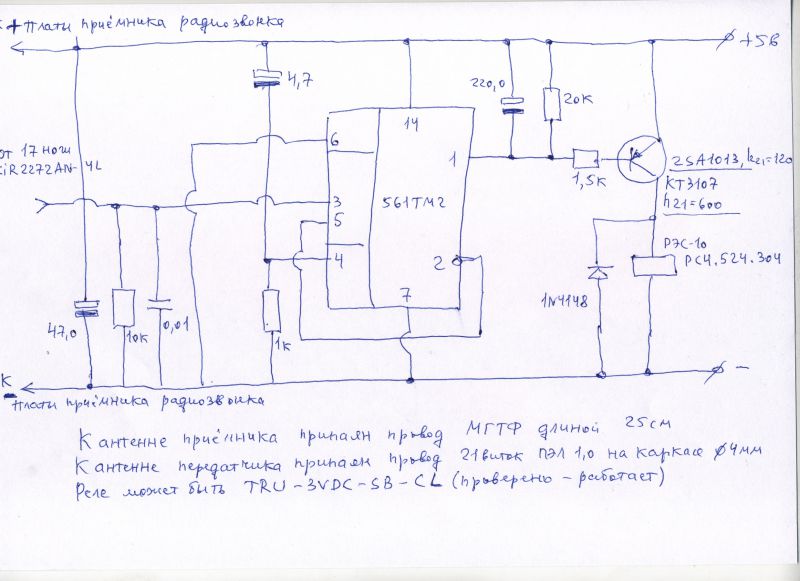 + Платы приёмника радиозвонка
+5в
4,7
220,0
20к
14
6
1
от 17 ножки
2272AN-4L
1,5к
2SA1013, h21=120
КТ3107
h21=600
3
561ТМ2
5
4
2
РЭС-10
РС4.524.304
7
1N4148
47,0
10к
0,01
1к
К
-
- Платы приёмника радиозвонка
К антенне приёмника припаян провод МГТФ длиной 25см
К антенне передатчика припаян провод 21 виток ПЭЛ 1,0 на каркасе ф4мм
Реле может быть TRU-3VDC-SB-CL (проверено - работает)